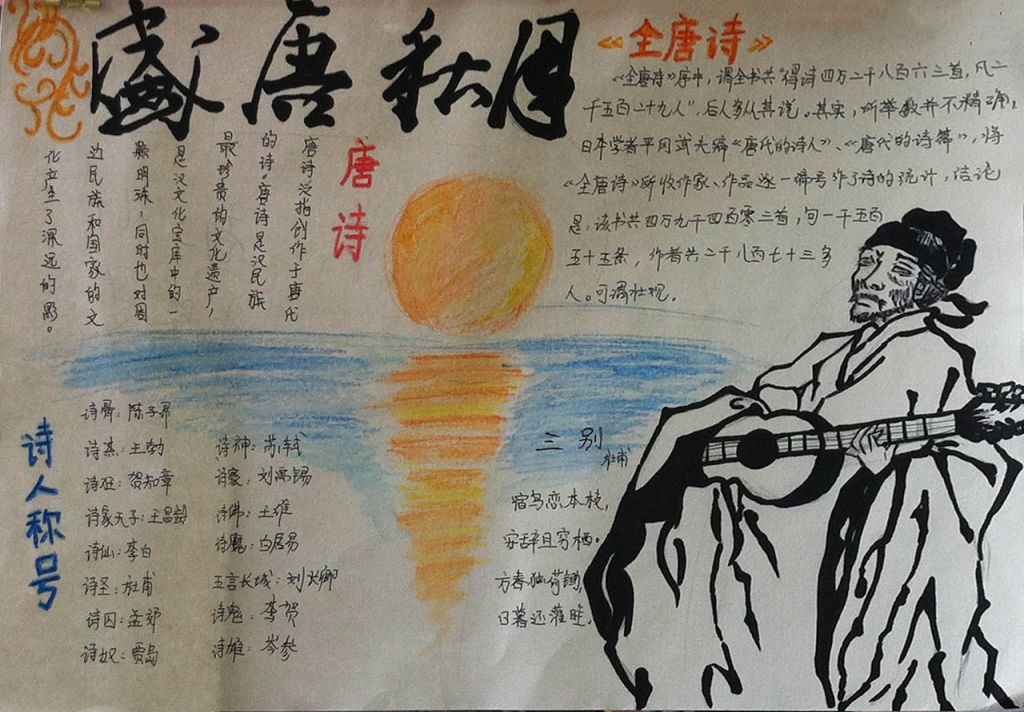 盛唐秋月
《全唐诗》
《全唐诗》序中,谓全书共"得诗四万二千八百六三首,凡二
千五百二十九人",后人多从其说。其实,所举数并不精确,
日本学者平冈武夫编《唐代的诗人》、《唐代的诗篇》,将
《全唐诗》所收作家、作品逐一编号作了诗的统计,结论
是:该书共四万九千四百零三首,句一千五百
五十五条,作者共二千八百七十三多
人。可谓壮观。
唐诗
唐诗泛指创作于唐代
的诗。唐诗是汉民族
最珍贵的文化遗产,
是汉文化宝库中的一
颗明珠,同时也对周
边民族和国家的文
化产生了深远的影。
诗人称号
诗骨:陈子昂
诗杰:王勃
诗狂:贺知章
诗家天子:王昌龄
诗仙:李白
诗圣:杜甫
诗囚:孟郊
诗奴:贾岛
诗神:苏轼
诗豪:刘禹锡
诗佛:王维
诗魔:白居易
五言长城:刘长卿
诗鬼:李贺
诗雄:岑参
三别
杜甫
宿鸟恋本枝,
安辞且穷栖。
方春独荷锄,
日暮还灌畦。